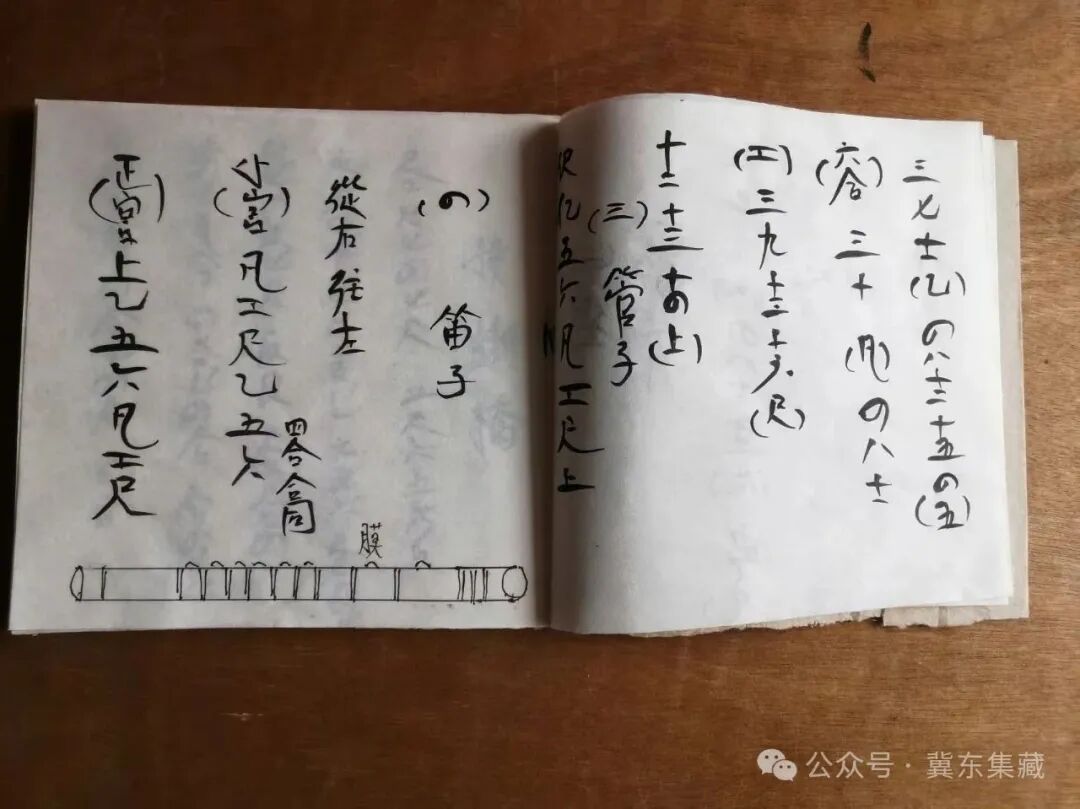 三七十(乙)の八十二十五の(五)
(六合)三十(凡)の八十一
(工)三九十二十六(尺)
十二十三十の(上)
(三)管子
亿五六凡工尺上
(の)笛子
從右往左
(小宫)凡工尺乙五六
四合合同
(正宫)上乙五六凡工尺
膜
公众号·冀东集藏